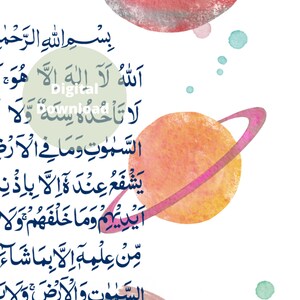 بِسْمِ اللهِ الرَّحْمٰ
اَللهُ لَآ اِلٰهَ اِلَّا هُوَ
لَا تَاْخُذُهٗ سِنَةٌ وَّلَا
السَّمٰوٰتِ وَمَا فِی الْاَرْضِ
یَشْفَعُ عِنْدَهٗۤ اِلَّا بِاِذْنِ
اَیْدِیْهِمْ وَمَا خَلْفَهُمْ ۚ وَلَا
مِّنْ عِلْمِهٖۤ اِلَّا بِمَا شَآءَ
السَّمٰوٰتِ وَالْاَرْضَ ۚ وَلَا
Digital
Download